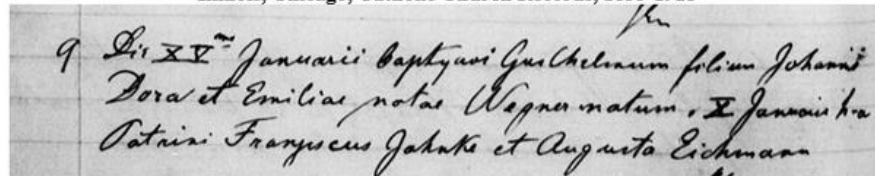 9 Die XVma Januarii baptyavi Guilhelmum filium Johannis
Dora et Emiliae notae Wepner natum, X Januarii h-a
Patrini Franyscus Jahnke et Augusta Eichmann